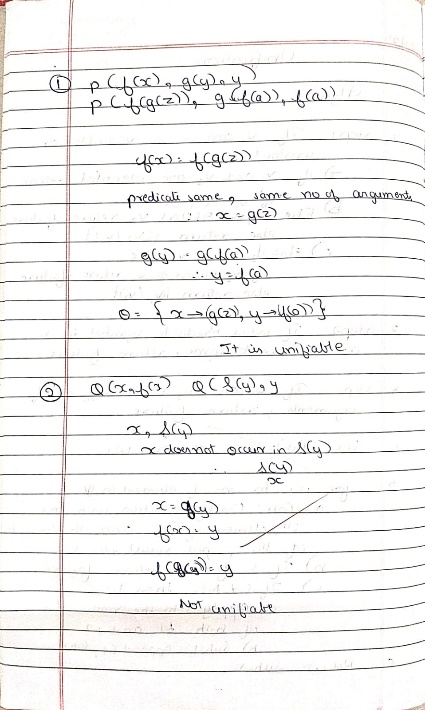 ① P(f(x), g(y), y)
P(f(g(z)), g(f(a)), f(a))
f(x) = f(g(z))
predicate same, same no of arguments
∴ x = g(z)
g(y) = g(f(a))
∴ y = f(a)
θ = { x → (g(z)), y → f(a)) }
It is unifiable
② Q(x, f(x) Q(S(y), y
x, S(y)
x doesnot occur in S(y)
S(y)
x
x = g(y)
f(x) = y
f(g(y)) = y
Not unifiabe